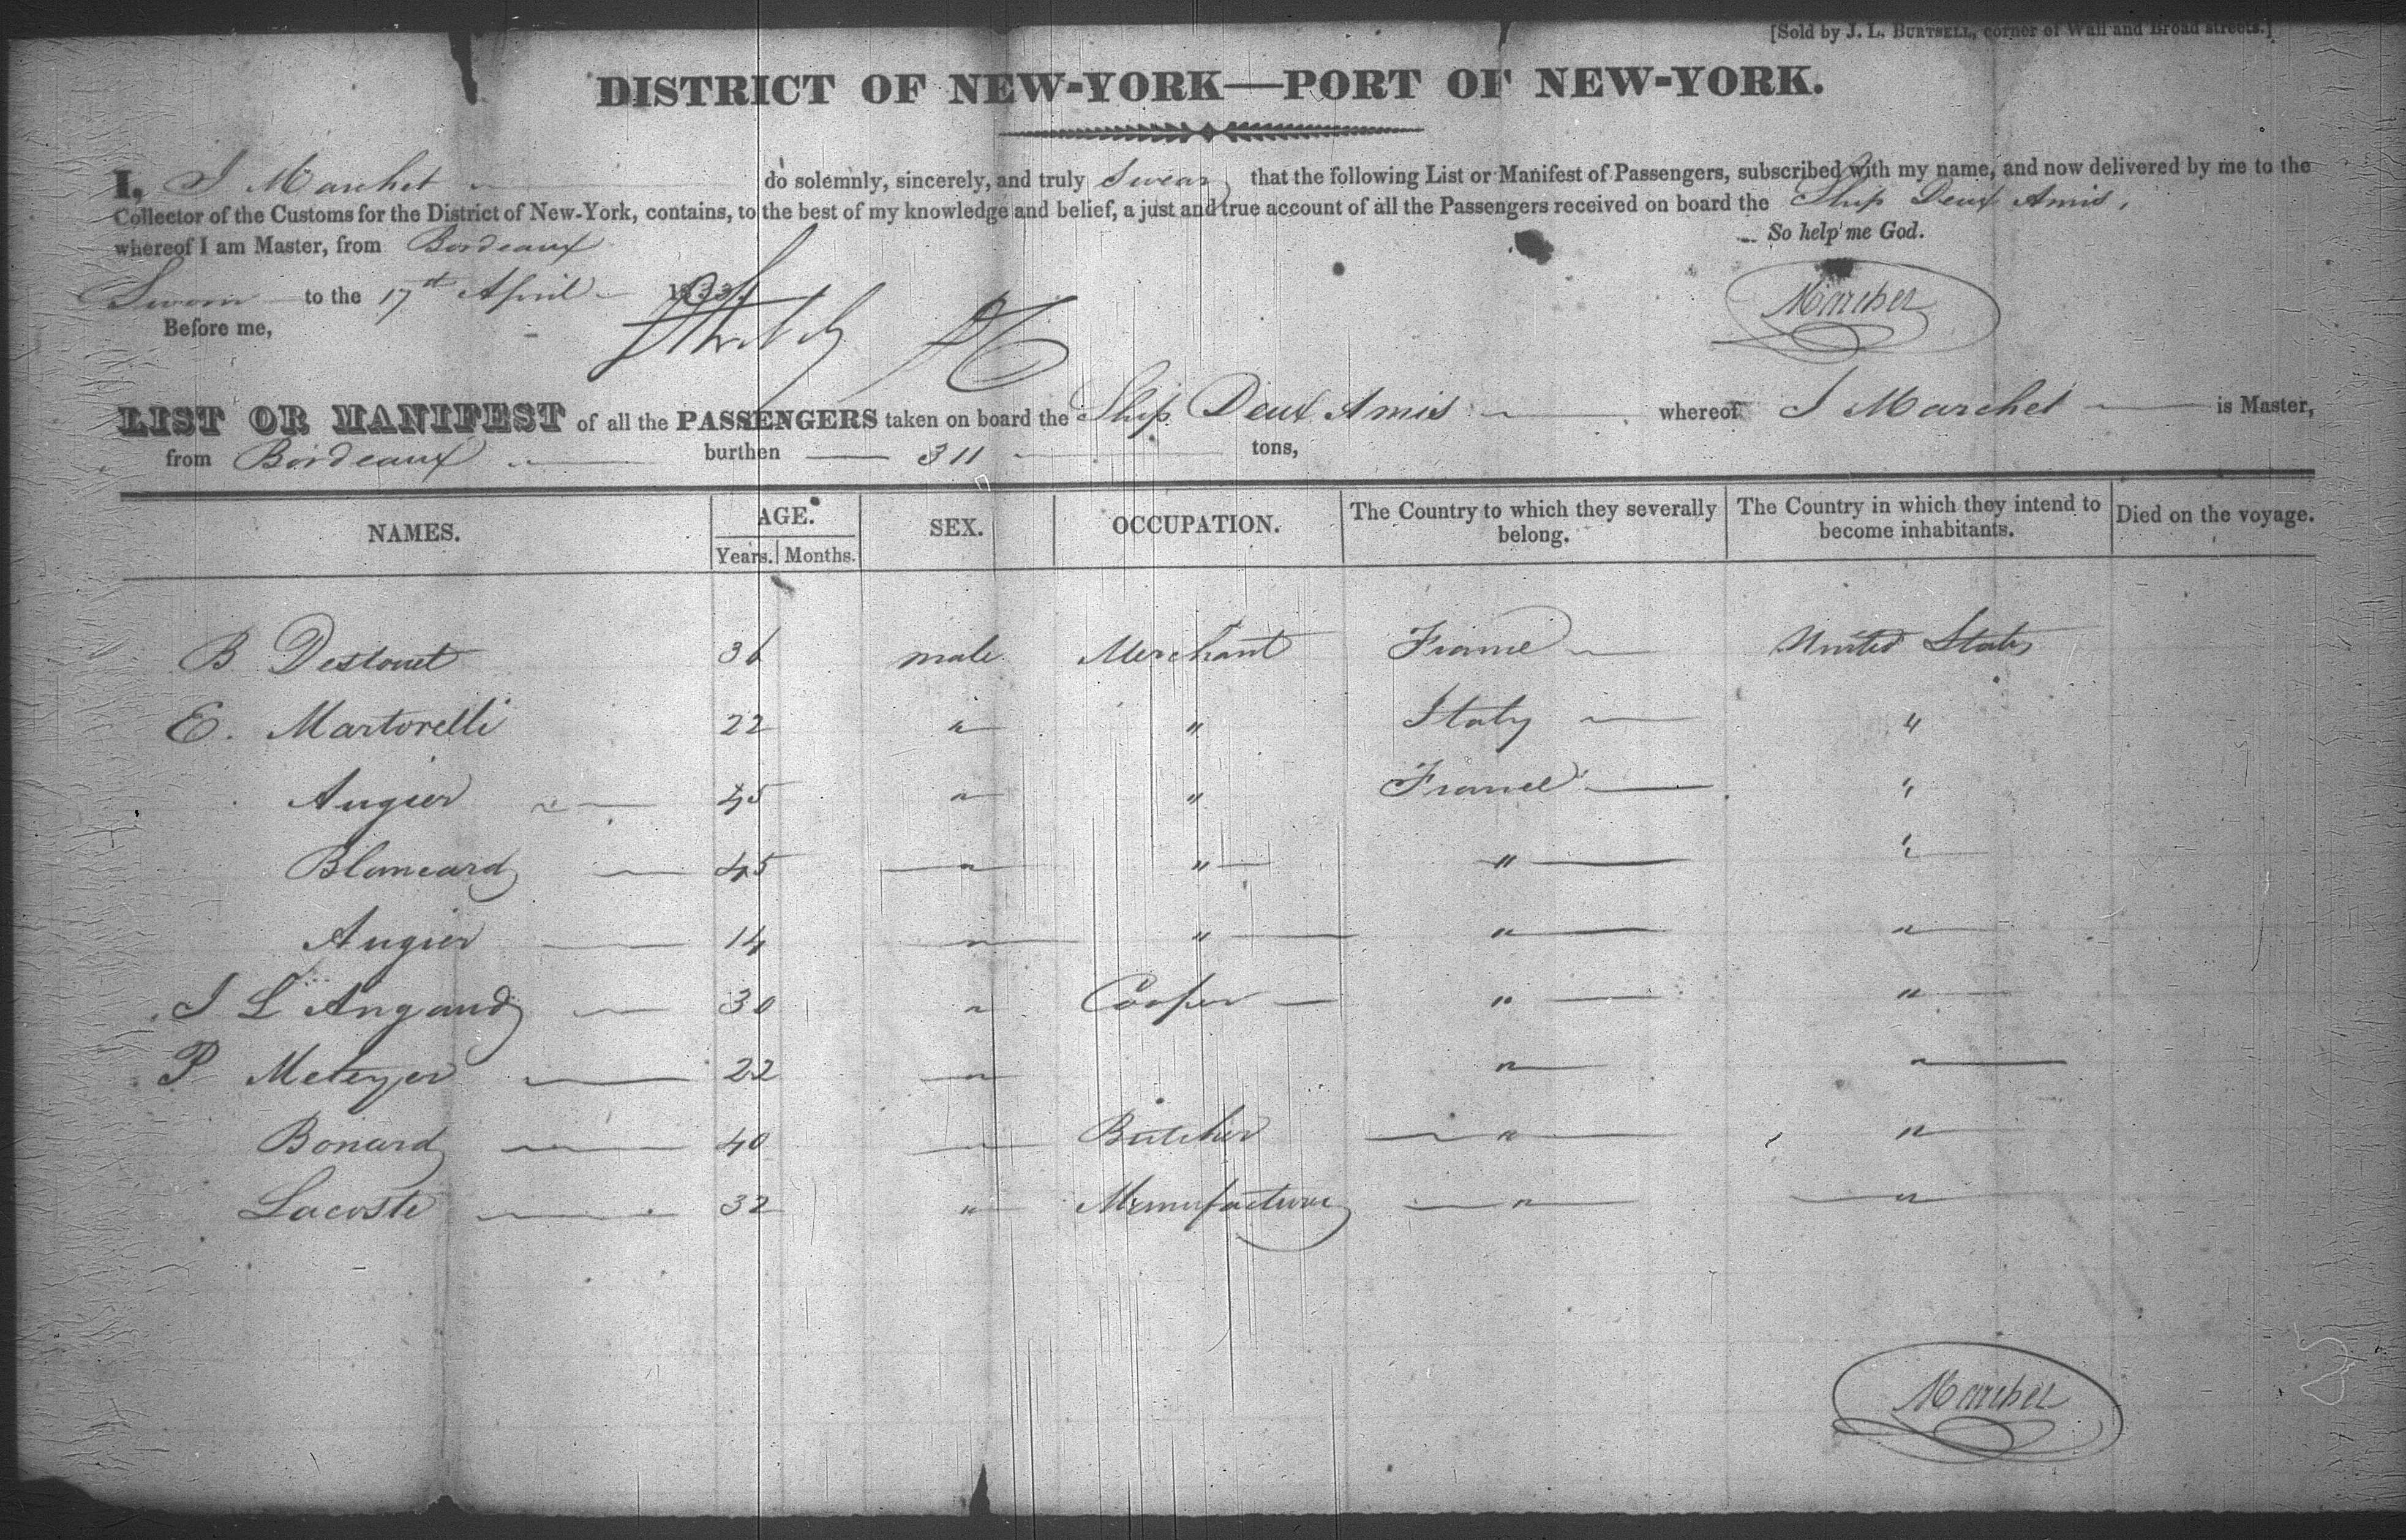 [Sold by J. L. BURTSELL, corner of Wall and Broad streets.]
DISTRICT OF NEW-YORK—PORT OF NEW-YORK.
I, J Marchet do solemnly, sincerely, and truly Swear that the following List or Manifest of Passengers, subscribed with my name, and now delivered by me to the
Collector of the Customs for the District of New-York, contains, to the best of my knowledge and belief, a just and true account of all the Passengers received on board the Ship Deux Amis,
whereof I am Master, from Bordeaux
So help me God.
Sworn to the 17th April
Before me,
LIST OR MANIFEST of all the PASSENGERS taken on board the Ship Deux Amis whereof J Marchet is Master,
from Bordeaux burthen 311 tons,
NAMES. AGE. SEX. OCCUPATION. The Country to which they severally belong. The Country in which they intend to become inhabitants. Died on the voyage.
Years. Months.
B Destouet 36 male Merchant France United States
E. Martorelli 22 " " Italy "
Augier 45 " " France "
Blancard 45 " " " "
Augier 14 " " " "
J L Angaud 30 " Cooper " "
P Meteyer 22 " " "
Bonard 40 " Butcher " "
Lacoste 32 " Manufacturer " "